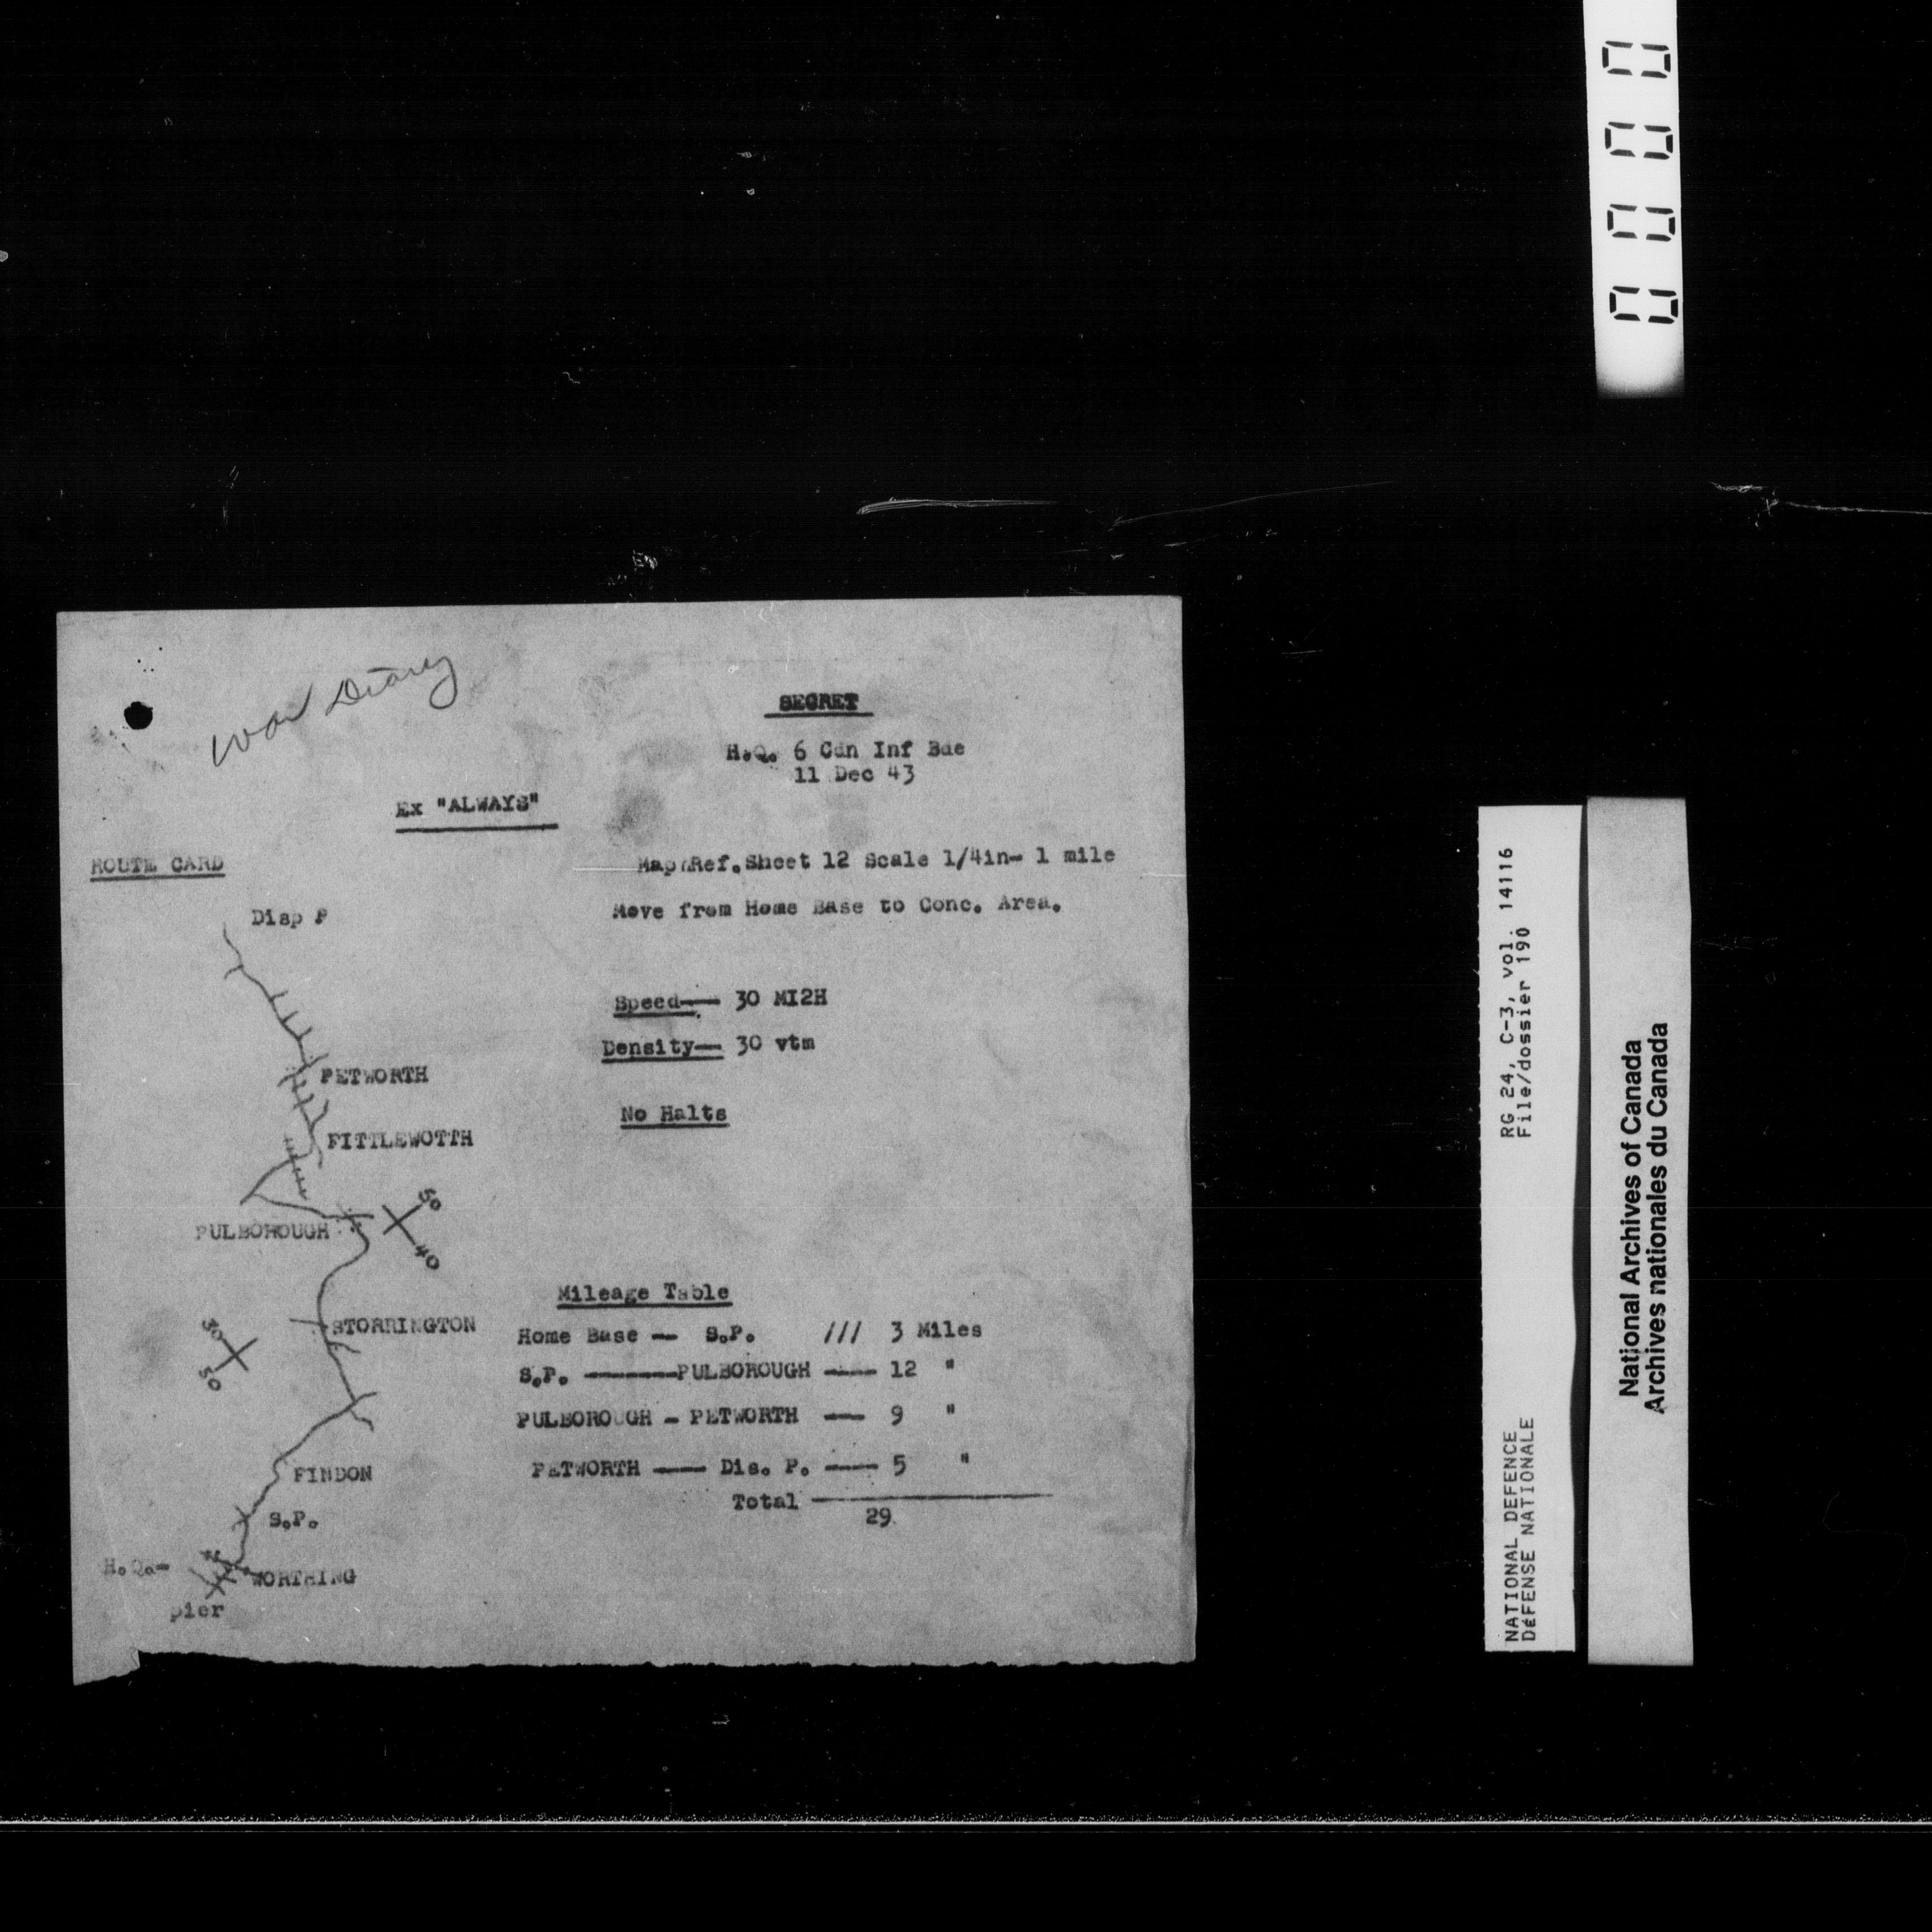 0000
War Diary
SECRET
H.Q. 6 Cdn Inf Bde
11 Dec 43
Ex "ALWAYS"
ROUTE CARD
Map Ref. Sheet 12 Scale 1/4in- 1 mile
Disp P
Move from Home Base to Conc. Area.
Speed— 30 MI2H
Density— 30 vtm
PETWORTH
No Halts
FITTLEWOTTH
50
PULBOROUGH
40
Mileage Table
STORRINGTON
30
50
Home Base — S.P. /// 3 Miles
S.P. ———PULBOROUGH —— 12 "
PULBOROUGH - PETWORTH — 9 "
FINDON
PETWORTH —— Dis. P. —— 5 "
Total
29
S.P.
H.Q.-
WORTHING
pier
RG 24, C-3, vol. 14116
File/dossier 190
NATIONAL DEFENCE
DéFENSE NATIONALE
National Archives of Canada
Archives nationales du Canada